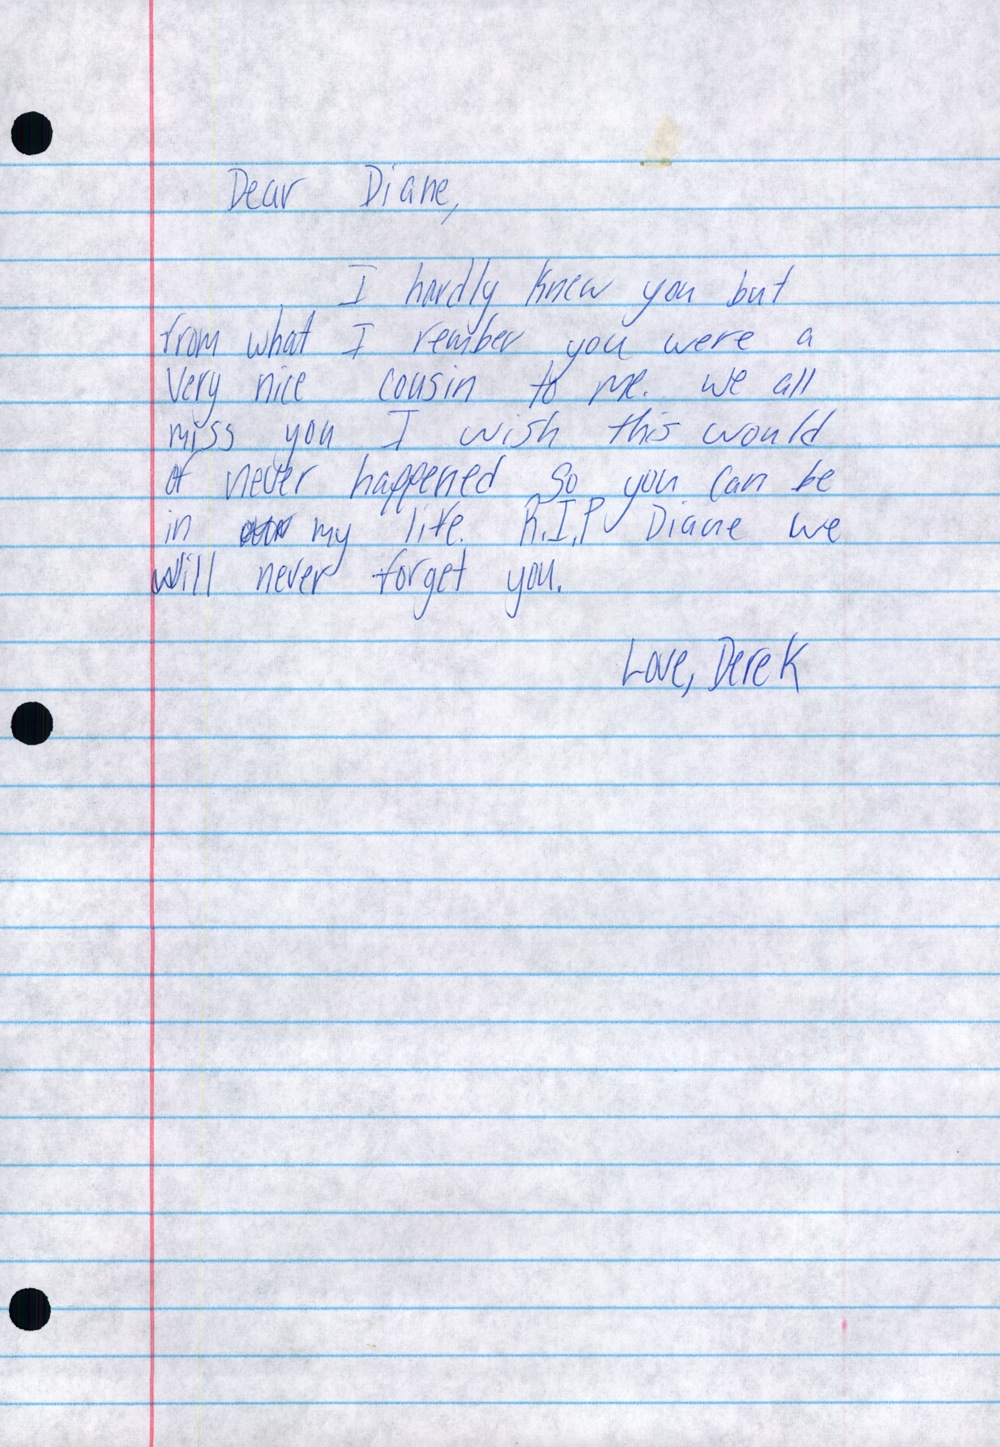 Dear Diane,
I hardly knew you but
from what I rember you were a
Very nice cousin to me. we all
miss you I wish this would
of never happened so you can be
in my life. R.I.P Diane we
will never forget you.
Love, Derek